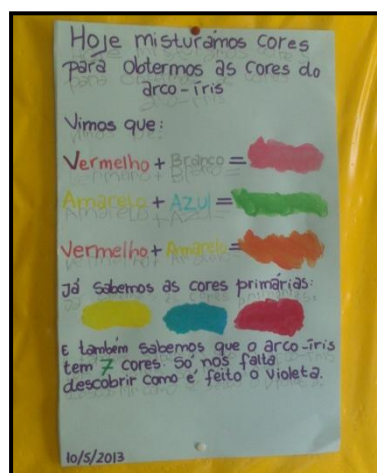 Hoje misturámos cores
para obtermos as cores do
arco-íris
Vimos que:
Vermelho + Branco =
Amarelo + Azul =
Vermelho + Amarelo =
Já sabemos as cores primárias:
E também sabemos que o arco-íris
tem 7 cores. Só nos falta
descobrir como é feito o violeta.
10/5/2013